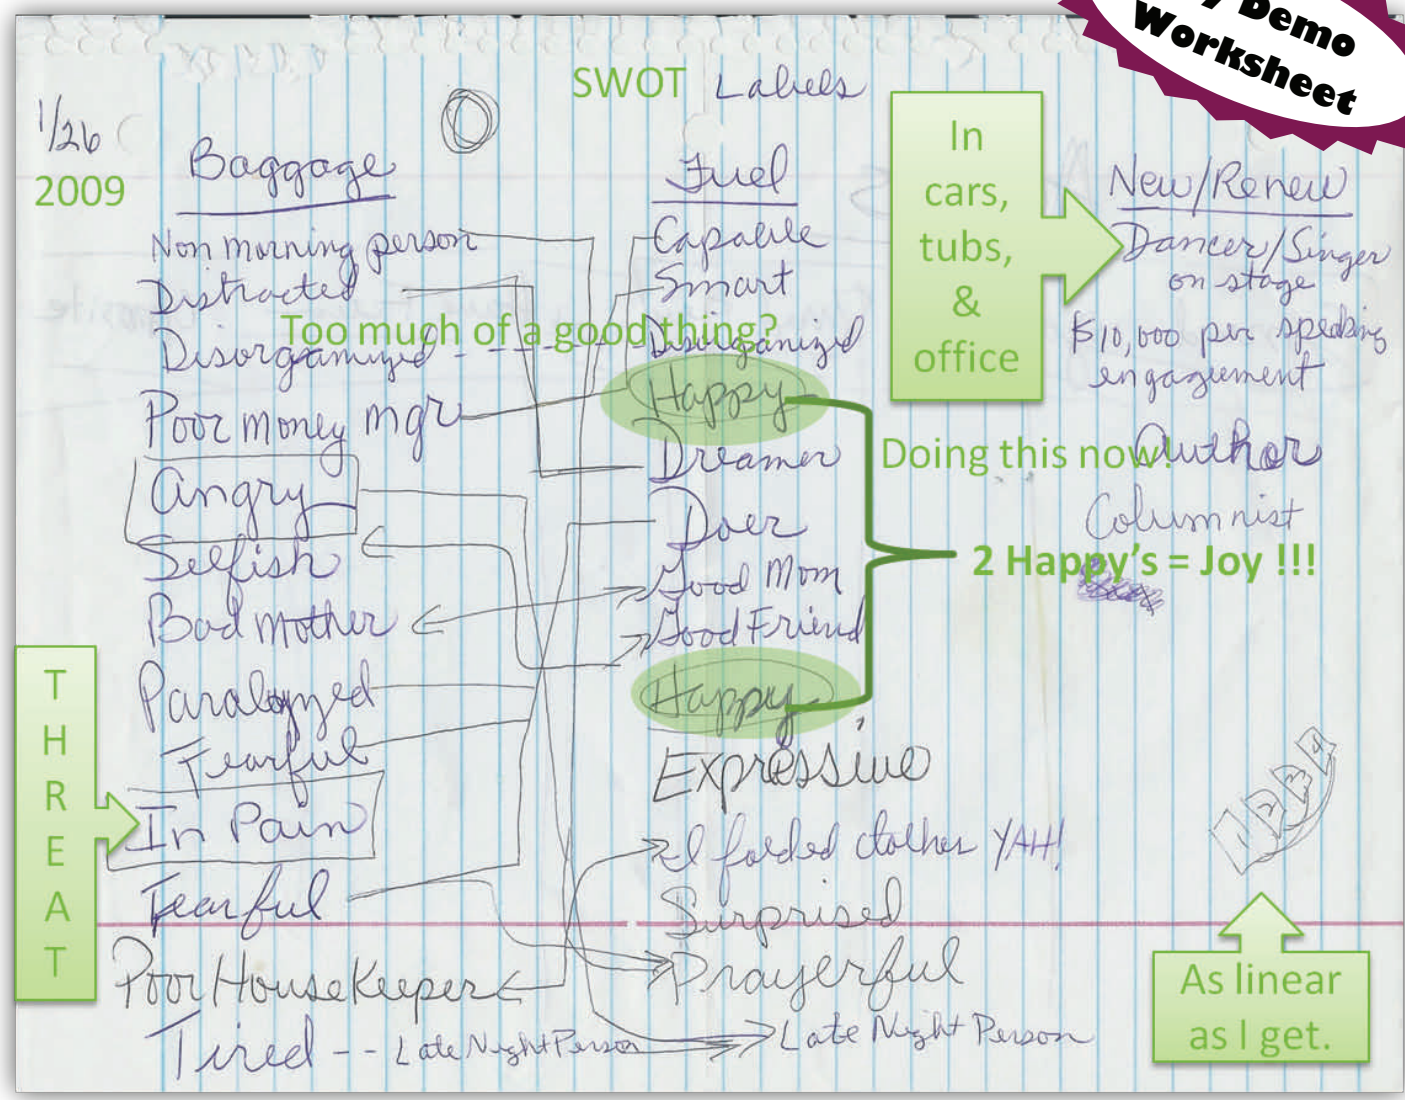 y Demo
Worksheet
SWOT Labels
1/26
2009
Baggage
Non morning person
Distracted
Disorganized
Poor money mgr
Angry
Selfish
Bad mother
Paralyzed
Fearful
In Pain
Fearful
Poor HouseKeeper
Tired -- Late Night Person
Too much of a good thing?
THREAT
Fuel
Capable
Smart
Disorganized
Happy
Dreamer
Doer
Good Mom
Good Friend
Happy
Expressive
I folded clothes YAH!
Surprised
Prayerful
Late Night Person
In
cars,
tubs,
&
office
New/Renew
Dancer/Singer
on stage
$10,000 per speaking
engagement
Doing this now!
Author
Columnist
2 Happy's = Joy !!!
1 2 3 4
As linear
as I get.